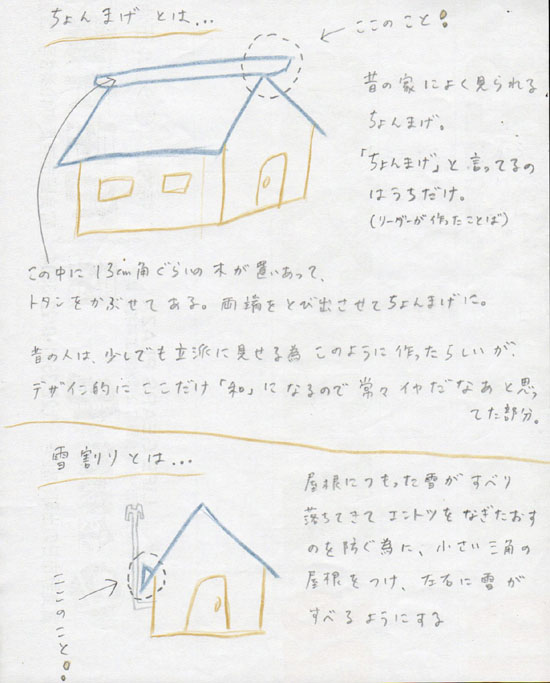 ちょんまげ とは...
ここのこと!
昔の家によく見られる
ちょんまげ。
「ちょんまげ」と言ってるの
はうちだけ。
(リーダーが作ったことば)
この中に13cm角ぐらいの木が置いあって、
トタンをかぶせてある。両端をとび出させてちょんまげに。
昔の人は、少しでも立派に見せる為このように作ったらしいが、
デザイン的にここだけ「和」になるので常々イヤだなあと思っ
てた部分。
雪割りとは...
ここのこと!
屋根につもった雪がすべり
落ちてきてエントツをなぎたおす
のを防ぐ為に、小さい三角の
屋根をつけ、左右に雪が
すべるようにする